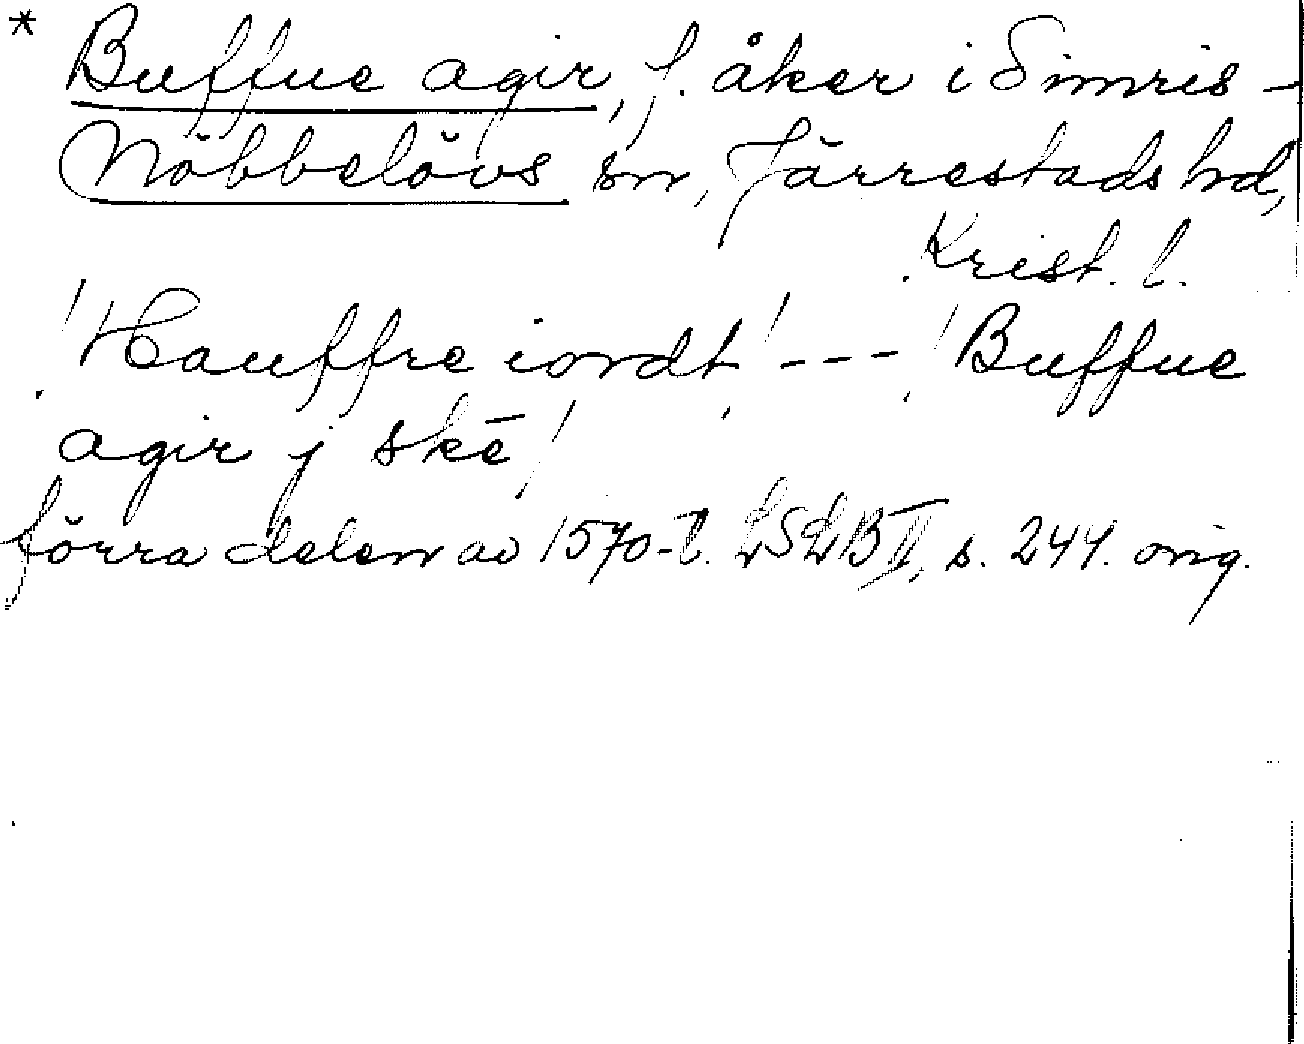 * Buffue agir, f. åker i Simris-
Nöbbelövs sn, Järrestads hd,
Krist. l.
'Hauffre iordt' --- 'Buffue
agir j skē'
förra delen av 1570-t. LSLB II, s. 244. orig.